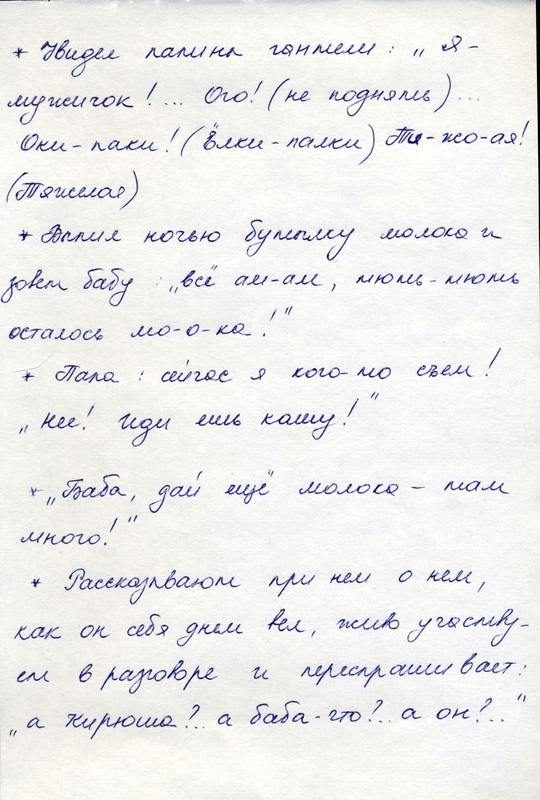 * Увидел папины гантели: „Я-
мужичок!... Ого! (не поднять)...
Оки-паки! (Ёлки-палки) Тя-жо-ая!
(Тяжелая)
* Выпил ночью бутылку молока и
зовет бабу: „всё ам-ам, тють-тють
осталось мо-о-ка!"
* Папа: сейчас я кого-то съем!
„Нее! Иди ешь кашу!"
* „Баба, дай ещё молока – там
много!"
* Рассказывают при нем о нем,
как он себя днем вел, живо участву-
ет в разговоре и переспрашивает:
„а Кирюша?.. а баба-что?.. а он?.."